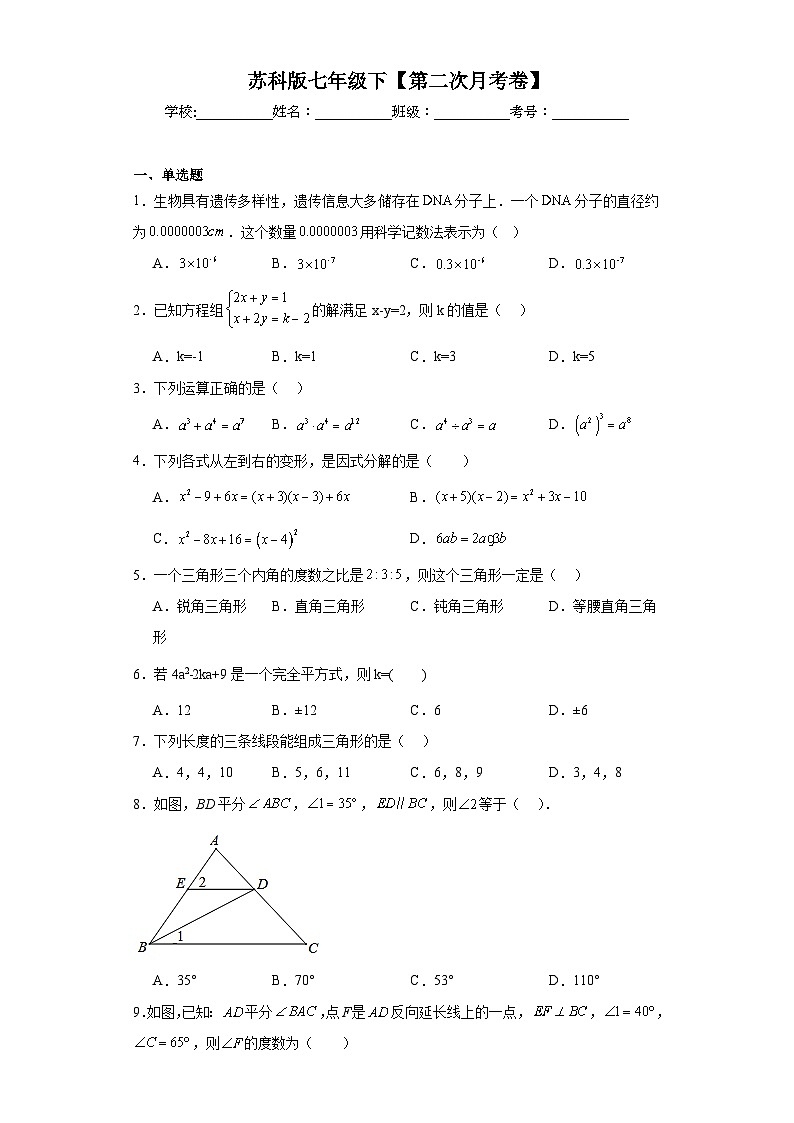 苏科版七年级下【第二次月考卷】
学校:___________姓名：___________班级：___________考号：___________
一、单选题
1．生物具有遗传多样性，遗传信息大多储存在 DNA 分子上．一个 DNA 分子的直径约
为 0.0000003cm．这个数量 0.0000003 用科学记数法表示为（ ）
A．3×10⁻⁶ B．3×10⁻⁷ C．0.3×10⁻⁶ D．0.3×10⁻⁷
2．已知方程组 {2x+y=1 x+2y=k-2 的解满足 x-y=2，则 k 的值是（ ）
A．k=-1 B．k=1 C．k=3 D．k=5
3．下列运算正确的是（ ）
A．a³+a⁴=a⁷ B．a³·a⁴=a¹² C．a⁴÷a³=a D．(a²)³=a⁸
4．下列各式从左到右的变形，是因式分解的是（ ）
A．x²-9+6x=(x+3)(x-3)+6x B．(x+5)(x-2)=x²+3x-10
C．x²-8x+16=(x-4)² D．6ab=2ag3b
5．一个三角形三个内角的度数之比是 2:3:5，则这个三角形一定是（ ）
A．锐角三角形 B．直角三角形 C．钝角三角形 D．等腰直角三角
形
6．若 4a²-2ka+9 是一个完全平方式，则 k=( )
A．12 B．±12 C．6 D．±6
7．下列长度的三条线段能组成三角形的是（ ）
A．4，4，10 B．5，6，11 C．6，8，9 D．3，4，8
8．如图，BD 平分∠ABC，∠1=35°，ED∥BC，则∠2等于（ ）．
A
E 2 D
B 1 C
A．35° B．70° C．53° D．110°
9．如图，已知：AD 平分∠BAC，点 F 是 AD 反向延长线上的一点，EF⊥BC，∠1=40°，
∠C=65°，则∠F 的度数为（ ）